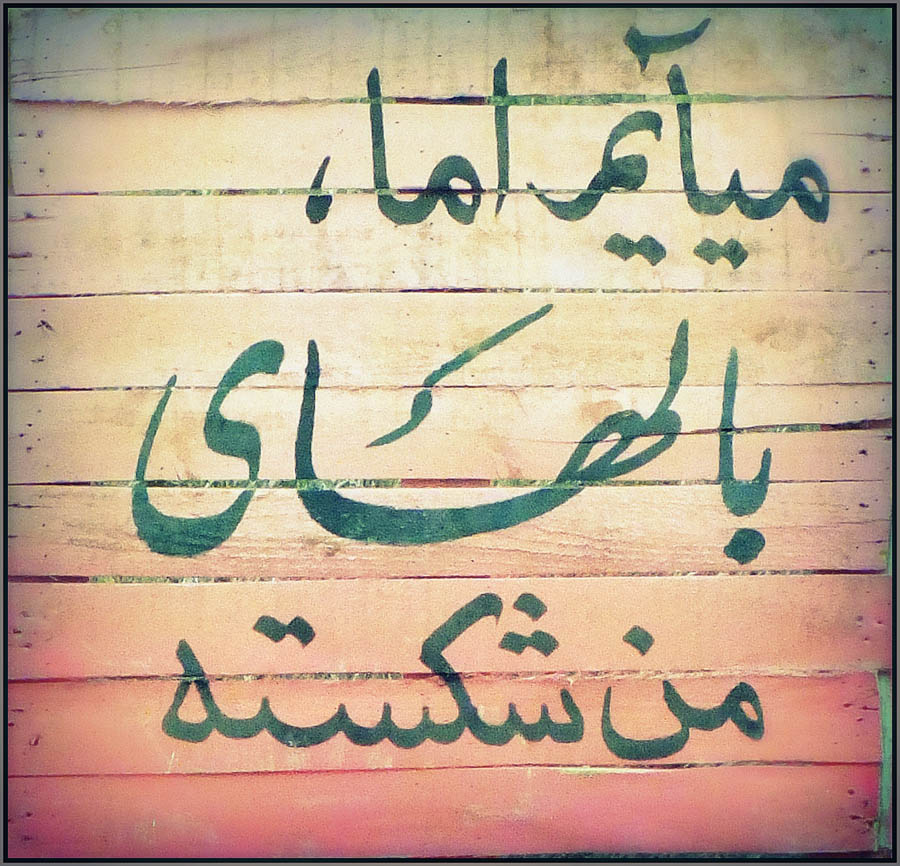 میآیم اما،
بالهای
من شکسته